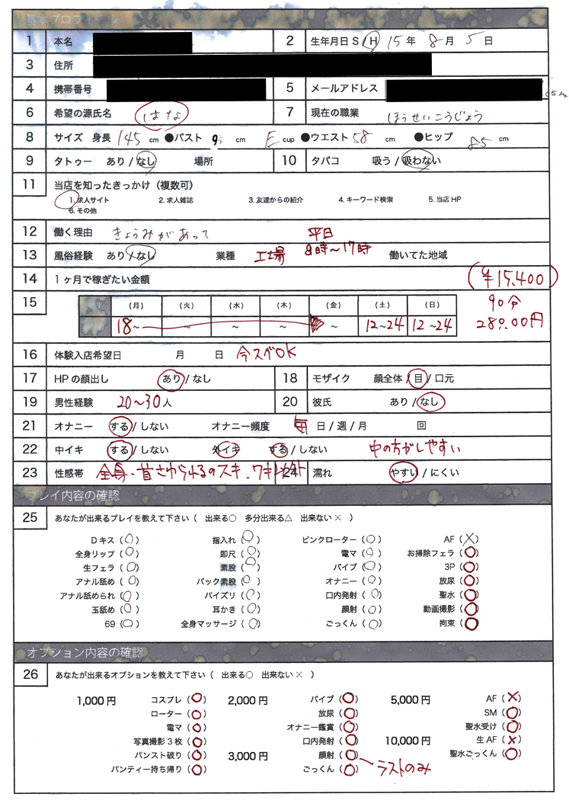 基本プロフィール
1 本名 2 生年月日 S / H 15年 8月 5日
3 住所
4 携帯番号 5 メールアドレス
6 希望の源氏名 はな 7 現在の職業 ほうせいこうじょう
8 サイズ 身長 145 cm ●バスト 95 cm E cup ●ウエスト 58 cm ●ヒップ 85 cm
9 タトゥー あり / なし 場所 10 タバコ 吸う / 吸わない
11 当店を知ったきっかけ（複数可）
1. 求人サイト 2. 求人雑誌 3. 友達からの紹介 4. キーワード検索 5. 当店 HP
6. その他
12 働く理由 きょうみがあって 平日
13 風俗経験 あり / なし 業種 工場 8時～17時 働いてた地域
14 1ヶ月で稼ぎたい金額 (¥15,400)
15 (月) (火) (水) (木) (金) (土) (日) 90分
18～ ～ ～ ～ ～ 12～24 12～24 28000円
16 体験入店希望日 月 日 今スぐOK
17 HPの顔出し あり / なし 18 モザイク 顔全体 / 目 / 口元
19 男性経験 20～30人 20 彼氏 あり / なし
21 オナニー する / しない オナニー頻度 毎 日 / 週 / 月 回
22 中イキ する / しない 外イキ する / しない 中の方がしやすい
23 性感帯 全身・首さわられるのスキ、ワキ以外 24 濡れ やすい / にくい
プレイ内容の確認
25 あなたが出来るプレイを教えて下さい（ 出来る○ 多分出来る△ 出来ない× ）
Dキス（○） 指入れ（○） ピンクローター（○） AF（×）
全身リップ（○） 即尺（○） 電マ（○） お掃除フェラ（○）
生フェラ（○） 素股（○） バイブ（○） 3P（○）
アナル舐め（○） バック素股（○） オナニー（○） 放尿（○）
アナル舐められ（○） パイズリ（○） 口内発射（○） 聖水（○）
玉舐め（○） 耳かき（○） 顔射（○） 動画撮影（○）
69（○） 全身マッサージ（○） ごっくん（○） 拘束（○）
オプション内容の確認
26 あなたが出来るオプションを教えて下さい（ 出来る○ 出来ない× ）
1,000円 コスプレ（○） 2,000円 バイブ（○） 5,000円 AF（×）
ローター（○） 放尿（○） SM（○）
電マ（○） オナニー鑑賞（○） 聖水受け（○）
写真撮影3枚（○） 口内発射（○） 10,000円 生AF（×）
パンスト破り（○） 3,000円 顔射（○） 聖水ごっくん（○）
パンティー持ち帰り（○） ごっくん（○） ラストのみ